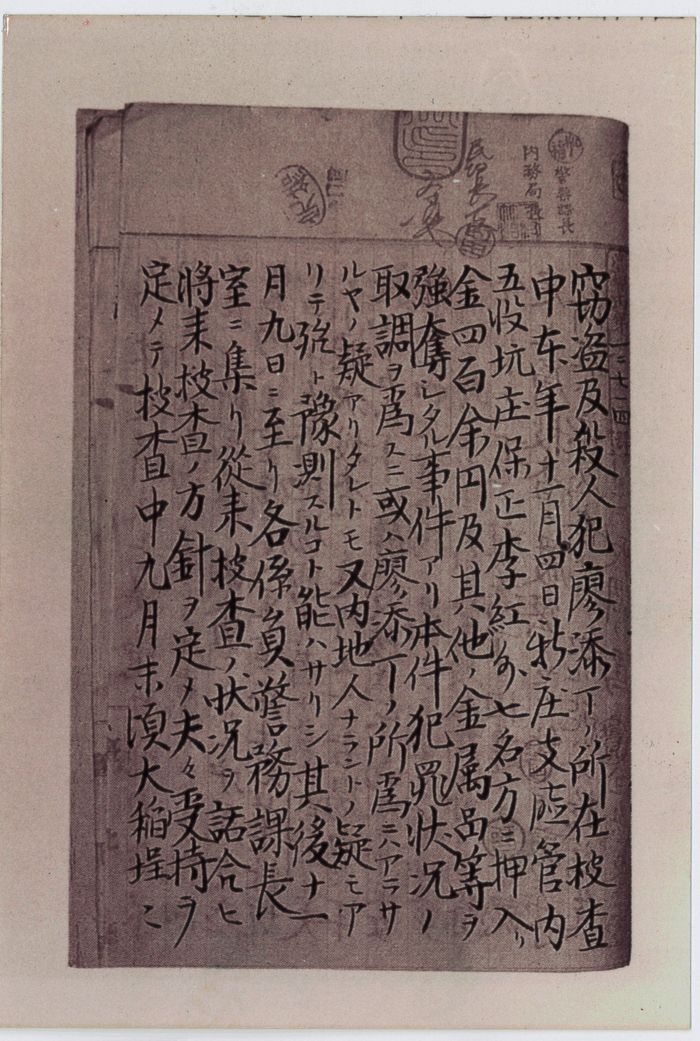 警務課長
内務局長
民
二七一四
窃盗及殺人犯廖添丁ノ所在捜査
中本年十一月四日新庄支廳管内
五股坑庄保正李紅外七名方ニ押入リ
金四百余円及其他ノ金属品等ヲ
強奪シタル事件アリ本件犯罪状況ノ
取調ヲ爲スニ或ハ廖添丁ノ所爲ニハアラサ
ルヤノ疑アリタレトモ又内地人ナラントノ疑モア
リテ強ト豫測スルコト能ハサリシ其後十一
月九日ニ至リ各係員警務課長
室ニ集リ從来捜査ノ状况ヲ話合ヒ
將来捜査ノ方針ヲ定メ夫々受持ヲ
定メテ捜査中九月末頃大稲埕ニ